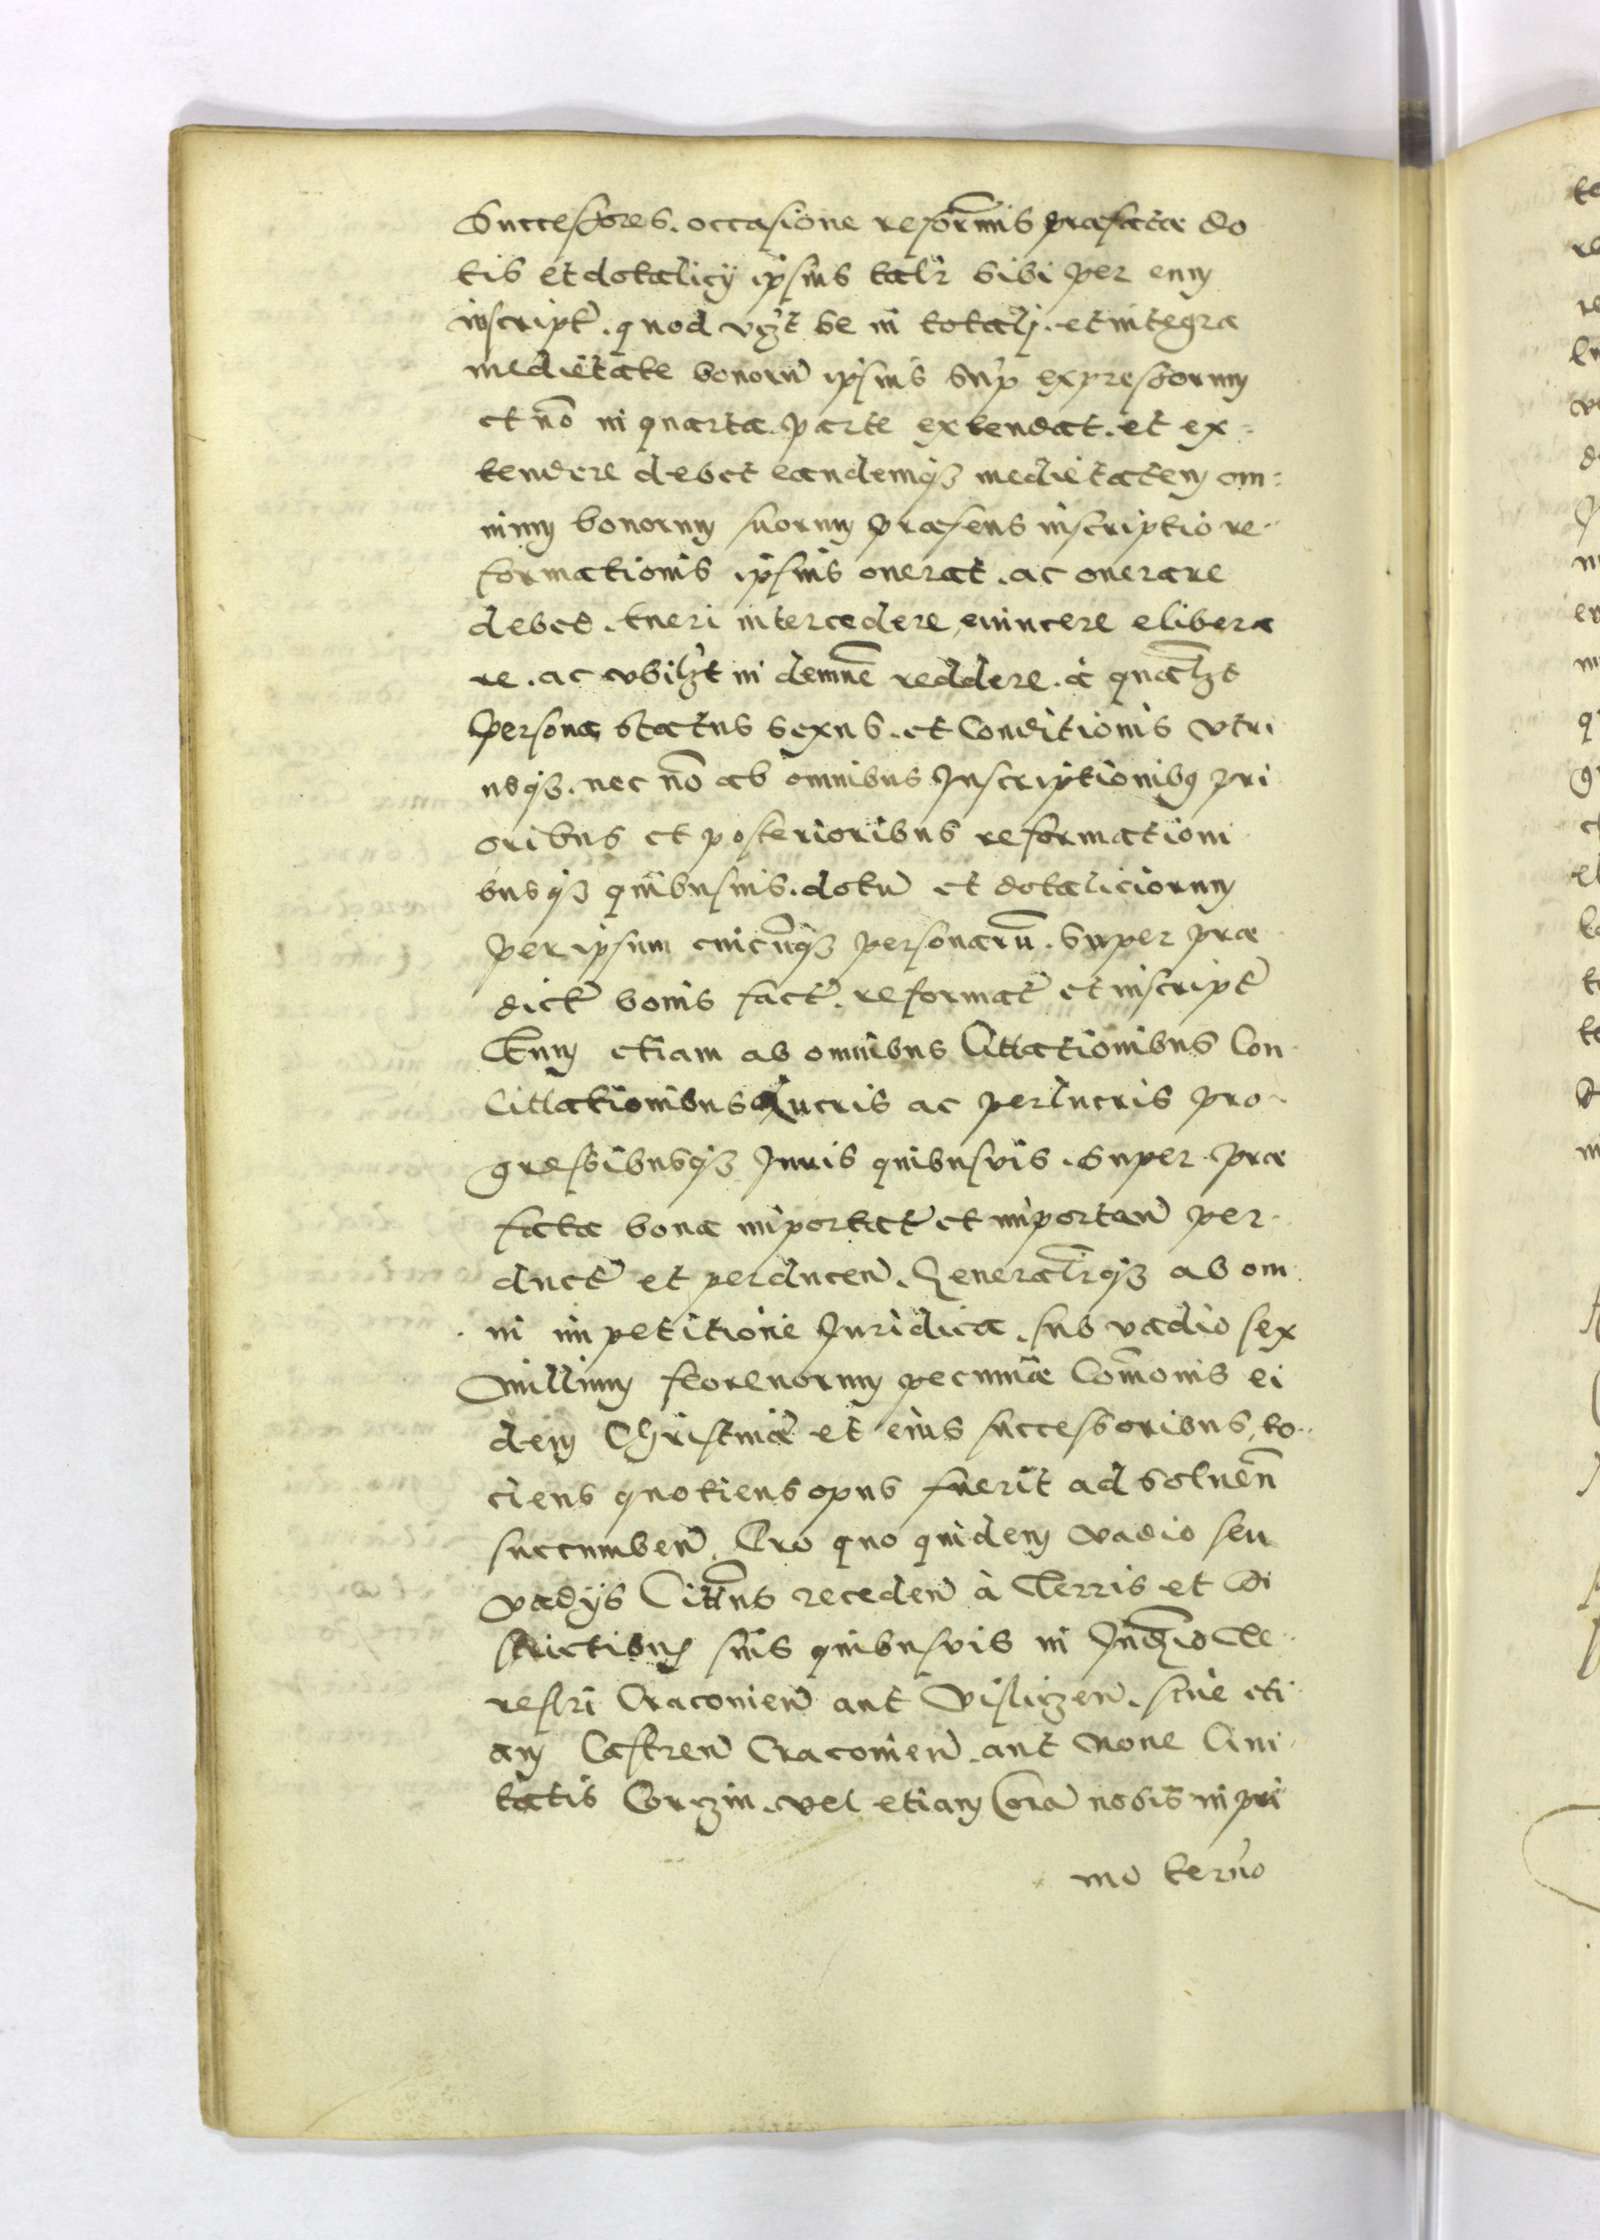 Successores. occasione reformnis præfatæ do
tis et dotalicÿ ipsius talr sibi per eum
inscript. quod vzt se in totali. et integra
medietate bonorū ipsius sup expressorum
et nō in quarta parte extendat. et ex=
tendere debet eandemqꝫ medietatem om=
nium bonorum suorum præsens inscriptio re-
formationis ipsius onerat. ac onerare
debet. tueri intercedere, evincere elibera
re. ac vbilzt in demnē reddere. à qualzt
persona, status sexus. et Conditionis vtri
usqꝫ. nec nō ab omnibus Inscriptionibꝯ pri
oribus et posterioribus reformationi
busqꝫ quibusuis. dotū et dotaliciorum
per ipsum cuicūqꝫ personarū. super præ
dict bonis fact. reformat et inscript
Tum etiam ab omnibus Cittationibus Con
Cittationibus Lucris ac perlucris pro-
gressibusqꝫ Juris quibusvis. super præ
fata bona importat et importan per-
duct et perducen. Generalrqꝫ ab om
ni impetitione Juridica. sub vadio sex
Millium florenorum pecuniæ Com̄onis ei
dem Christinæ et eius successoribus, to-
ciens quotiens opus fuerit ad soluen
succumben. Pro quo quidem vadio seu
vadÿs Cittus receden à Terris et Di
strictibꝯ suis quibusvis in Judzio Te-
restri Cracovien aut Visliczen. siue eti
am Castren Cracovien. aut Noue Ciui
tatis Corczin. vel etiam Corā nobis in pri
mo termo